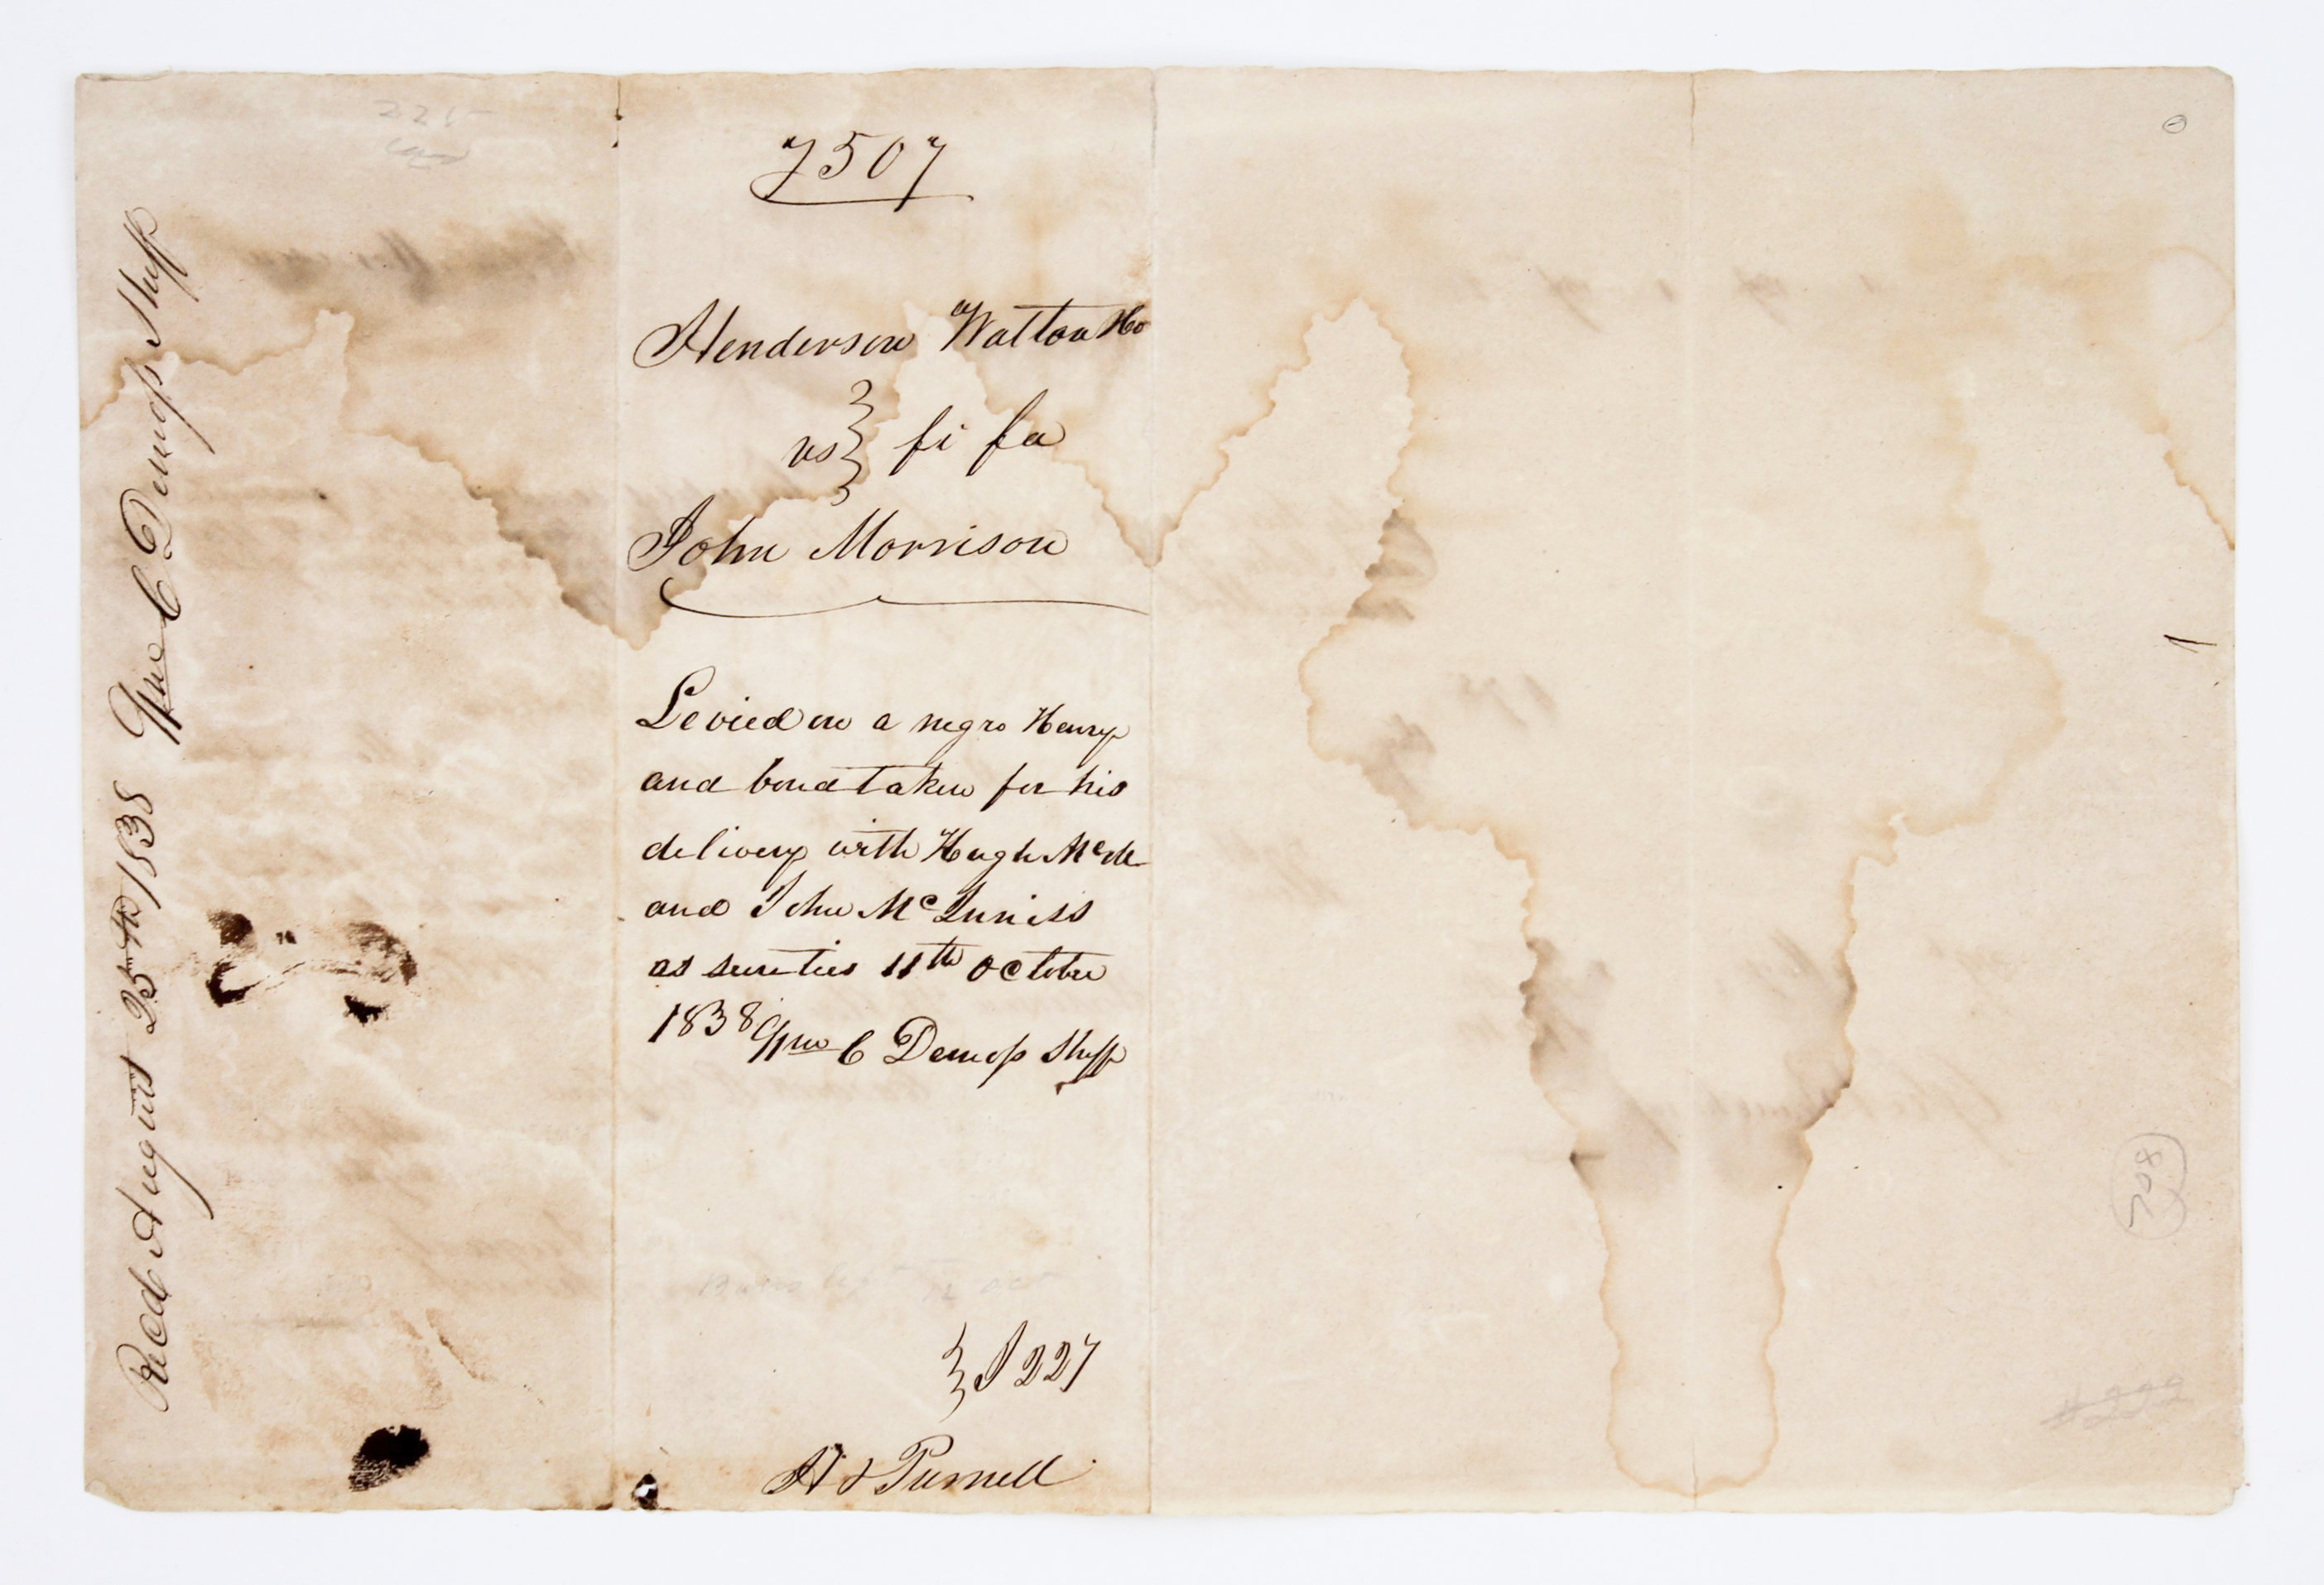 Recd August 25th 1838 Wm C Demoss Shff
7507
Henderson Walton &Co
vs } fi fa
John Morrison
Levied on a negro Henry
and bond taken for his
delivery with Hugh
and John McInniss
as sureties 11th October
1838 Wm C Demoss Shff
} J 227
H & Purnell
708